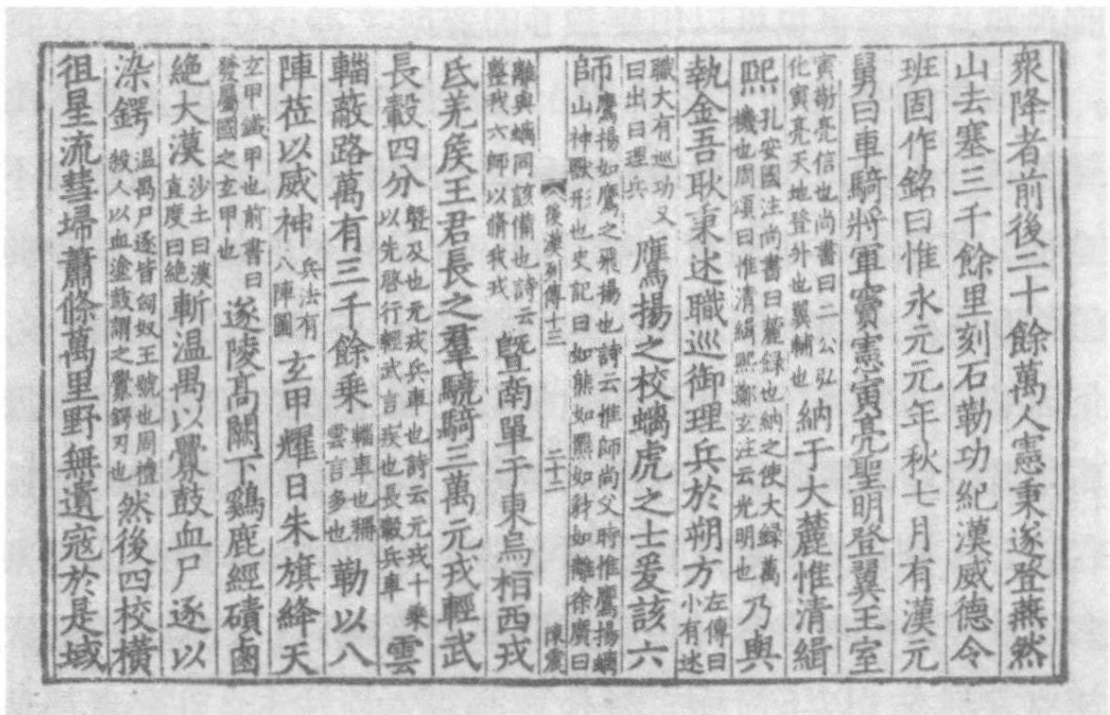 衆降者前後二十餘萬人憲秉遂登燕然
山去塞三千餘里刻石勒功紀漢威德令
班固作銘曰惟永元元年秋七月有漢元
舅曰車騎將軍竇憲寅亮聖明登翼王室
寅敬亮信也尚書曰二公弘化寅亮天地登升也翼輔也納于大麓惟清緝
熙孔安國注尚書曰麓録也納之使大録萬機也周頌曰惟清緝熙鄭玄注云光明也乃與
執金吾耿秉述職巡御理兵於朔方左傳曰小有述
職大有巡功又曰出曰理兵鷹揚之校螭虎之士爰該六
師鷹揚如鷹之飛揚也詩云惟師尚父時惟鷹揚螭山神獸形也史記曰如熊如羆如豺如離徐廣曰
後漢列傳十三 二十二 陳震
離與螭同該備也詩云整我六師以脩我戎暨南單于東烏桓西戎
氐羌侯王君長之羣驍騎三萬元戎輕武
長轂四分暨及也元戎兵車也詩云元戎十乘以先啓行輕武言疾也長轂兵車雲
輜蔽路萬有三千餘乘輜車也稱雲言多也勒以八
陣莅以威神兵法有八陣圖玄甲耀日朱旗絳天
玄甲鐵甲也前書曰發屬國之玄甲也遂陵高闕下雞鹿經磧鹵
絶大漠沙土曰漠直度曰絶斬温禺以釁鼓血尸逐以
染鍔温禺尸逐皆匈奴王號也周禮殺人以血塗鼓謂之釁鍔刃也然後四校橫
徂星流彗埽蕭條萬里野無遺寇於是域